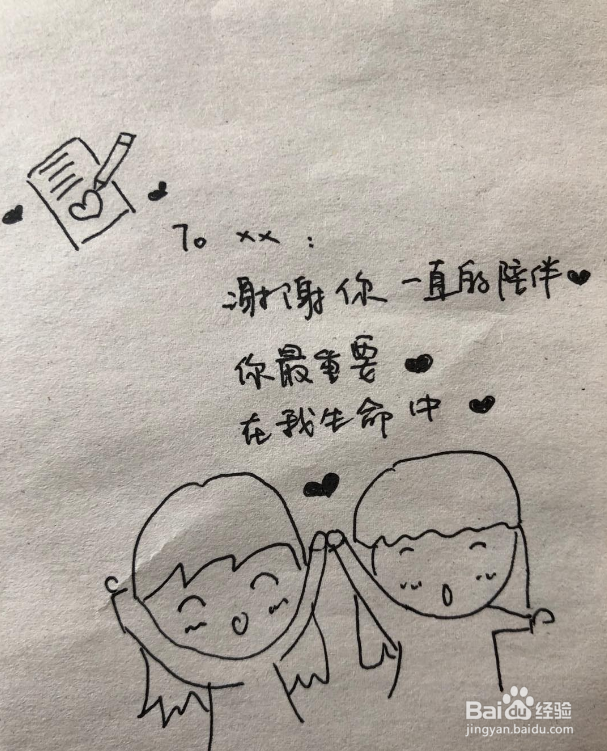 To xx:
谢谢你一直的陪伴
你最重要
在我生命中
Baidu经验
jingyan.baidu.com